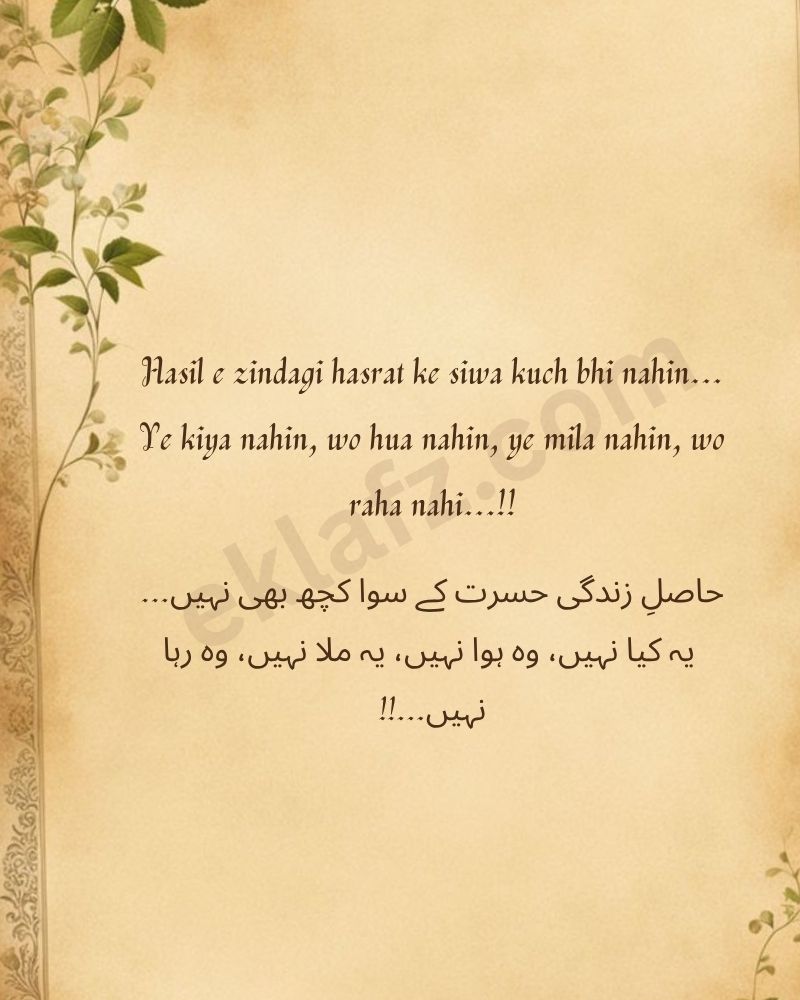 Hasil e zindagi hasrat ke siwa kuch bhi nahin...
Ye kiya nahin, wo hua nahin, ye mila nahin, wo
raha nahi...!!
حاصلِ زندگی حسرت کے سوا کچھ بھی نہیں...
یہ کیا نہیں، وہ ہوا نہیں، یہ ملا نہیں، وہ رہا
نہیں...!!
eklafz.com